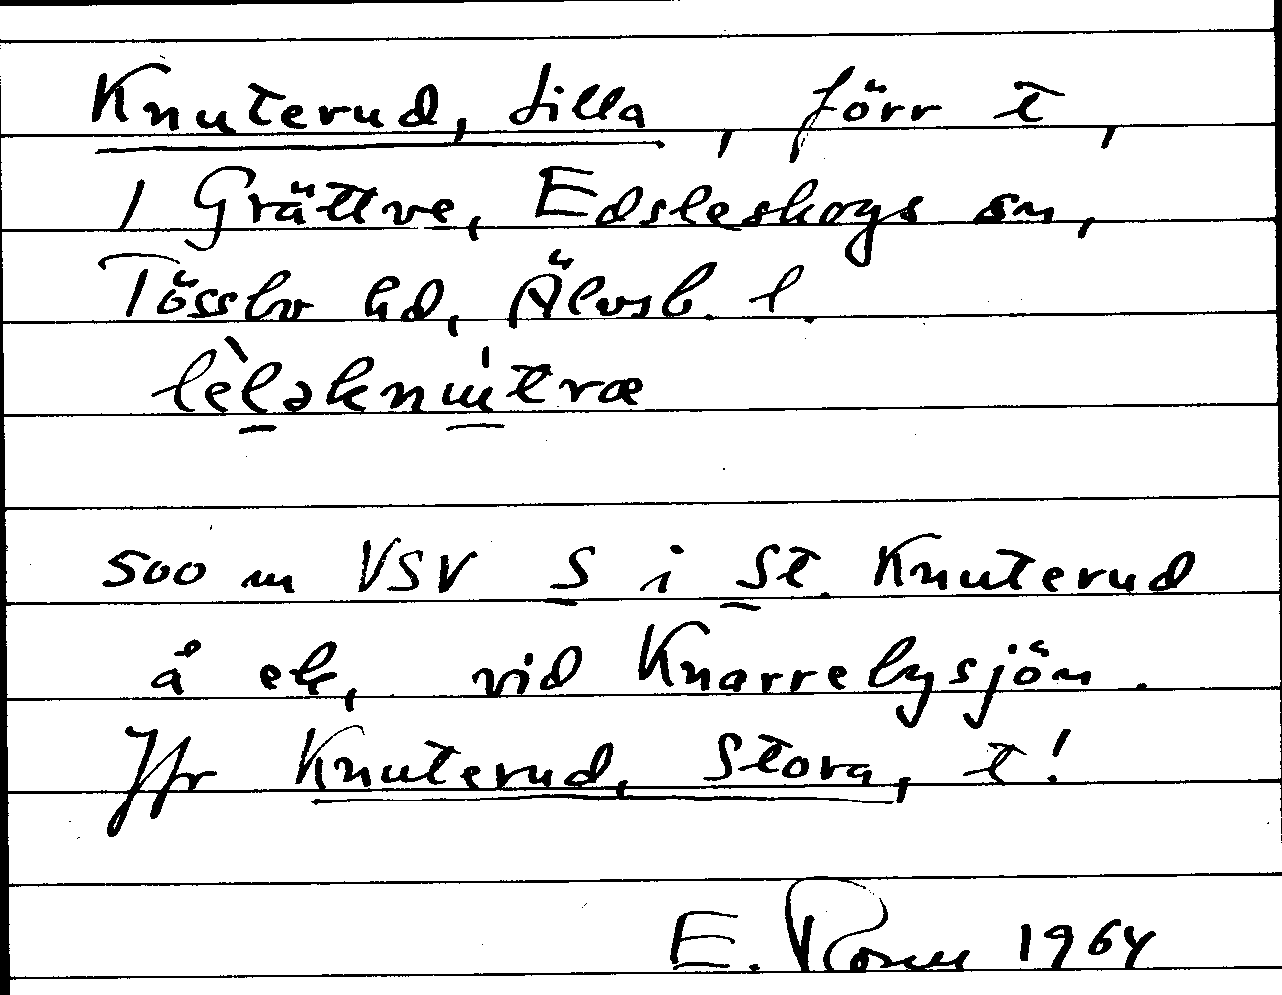 Knuterud, Lilla, förr t,
1 Grättve, Edsleskogs sn,
Tössbo hd, Älvsb. l.
500 m VSV S i St. Knuterud
å ek, vid Knarrebysjön.
Jfr Knuterud, Stora, t!
E. 1964